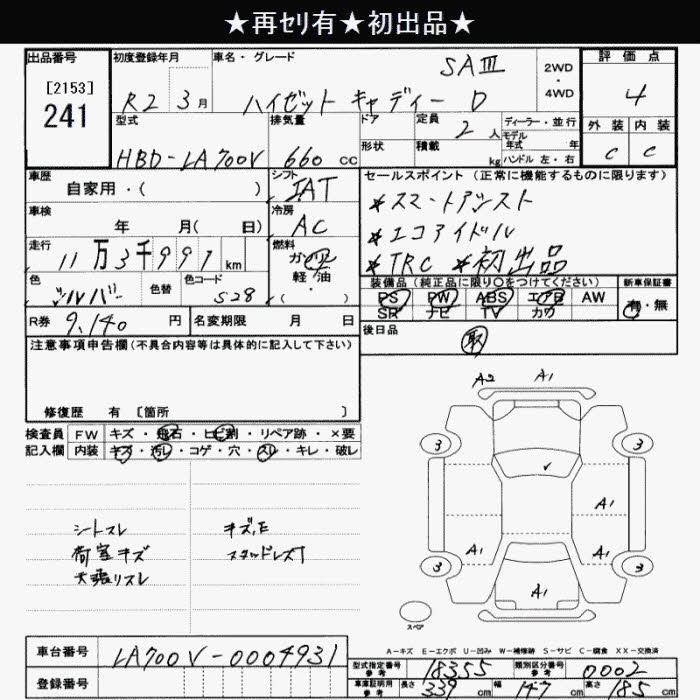 ★再セリ有★初出品★
出品番号 初度登録年月 車名・グレード 評価点
[2153] SAⅢ 2WD・4WD
241 R2 3月 ハイゼット キャディー D 4
型式 排気量 ドア 定員 2人 ディーラー・並行 外装 内装
モデル年式 年
HBD-LA700V 660cc 形状 積載 kg ハンドル 左・右 C C
車歴 シフト セールスポイント(正常に機能するものに限ります)
自家用・( ) IAT *スマートアシスト
車検 冷房
年 月( 日) AC *エコアイドル
走行 燃料
11万3千997km ガソリン *TRC *初出品
色 色替 色コード 軽・油 装備品(純正品に限り○をつけてください) 新車保証書
シルバー S28 ( ) PS PW ABS エアB AW 有・無
SR ナビ TV カワ
R券 9,140円 名変期限 月 日 後日品
注意事項申告欄(不具合内容等は具体的に記入して下さい) 取
A2 A1
修復歴 有 〔箇所 〕
検査員 FW キズ・飛石・ヒビ割・リペア跡・×要
記入欄 内装 キズ・汚レ・コゲ・穴・スレ・キレ・破レ
3 3
A1
シートスレ キズ,E
荷室キズ スタッドレスT
天張リスレ
A1 A1
3 3
A1
スペア
A-キズ E-エクボ U-凹み W-補修跡 S-サビ C-腐食 XX-交換済
車台番号 LA700V-0004931
型式指定番号 参考 18355 類別区分番号 参考 0002
登録番号 車庫証明用 参考 長さ 339cm 幅 147cm 高さ 185cm